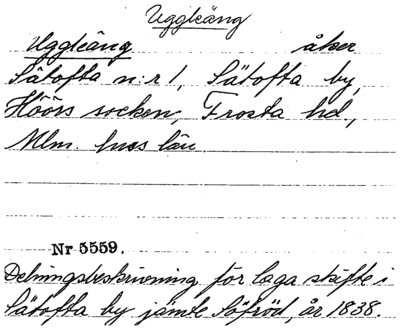 Uggleäng
Uggleäng åker
Sätofta n:r 1, Sätofta by,
Höörs socken, Frosta hd,
Mlm. hus län.
Nr 5559.
Delningsbeskrivning för laga skifte i
Sätofta by jämte Söfröd, år 1838.